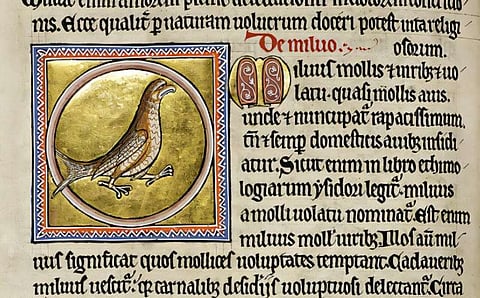 nis. Ecce qualit̃ p naturam volucrum doceri potest uita religi
De miluo. osorum.
Miluus mollis & uirib; & uo
latu. quasi mollis auis.
unde & nuncupat̃. rapacissimum
tñ & semp domesticis auib; insidi
atur. Sicut enim in libro ethimo
logiarum ysidori legit̃. miluus
a molli uolatu nominat̃. Est enim
miluus moll' uirib;. Illos aũ mil
uus significat quos mollicies uoluptates temptant. Cadauerib;
miluus uescit̃. q̃ carnalib; desidijs uoluptuosi delectant̃. Circa